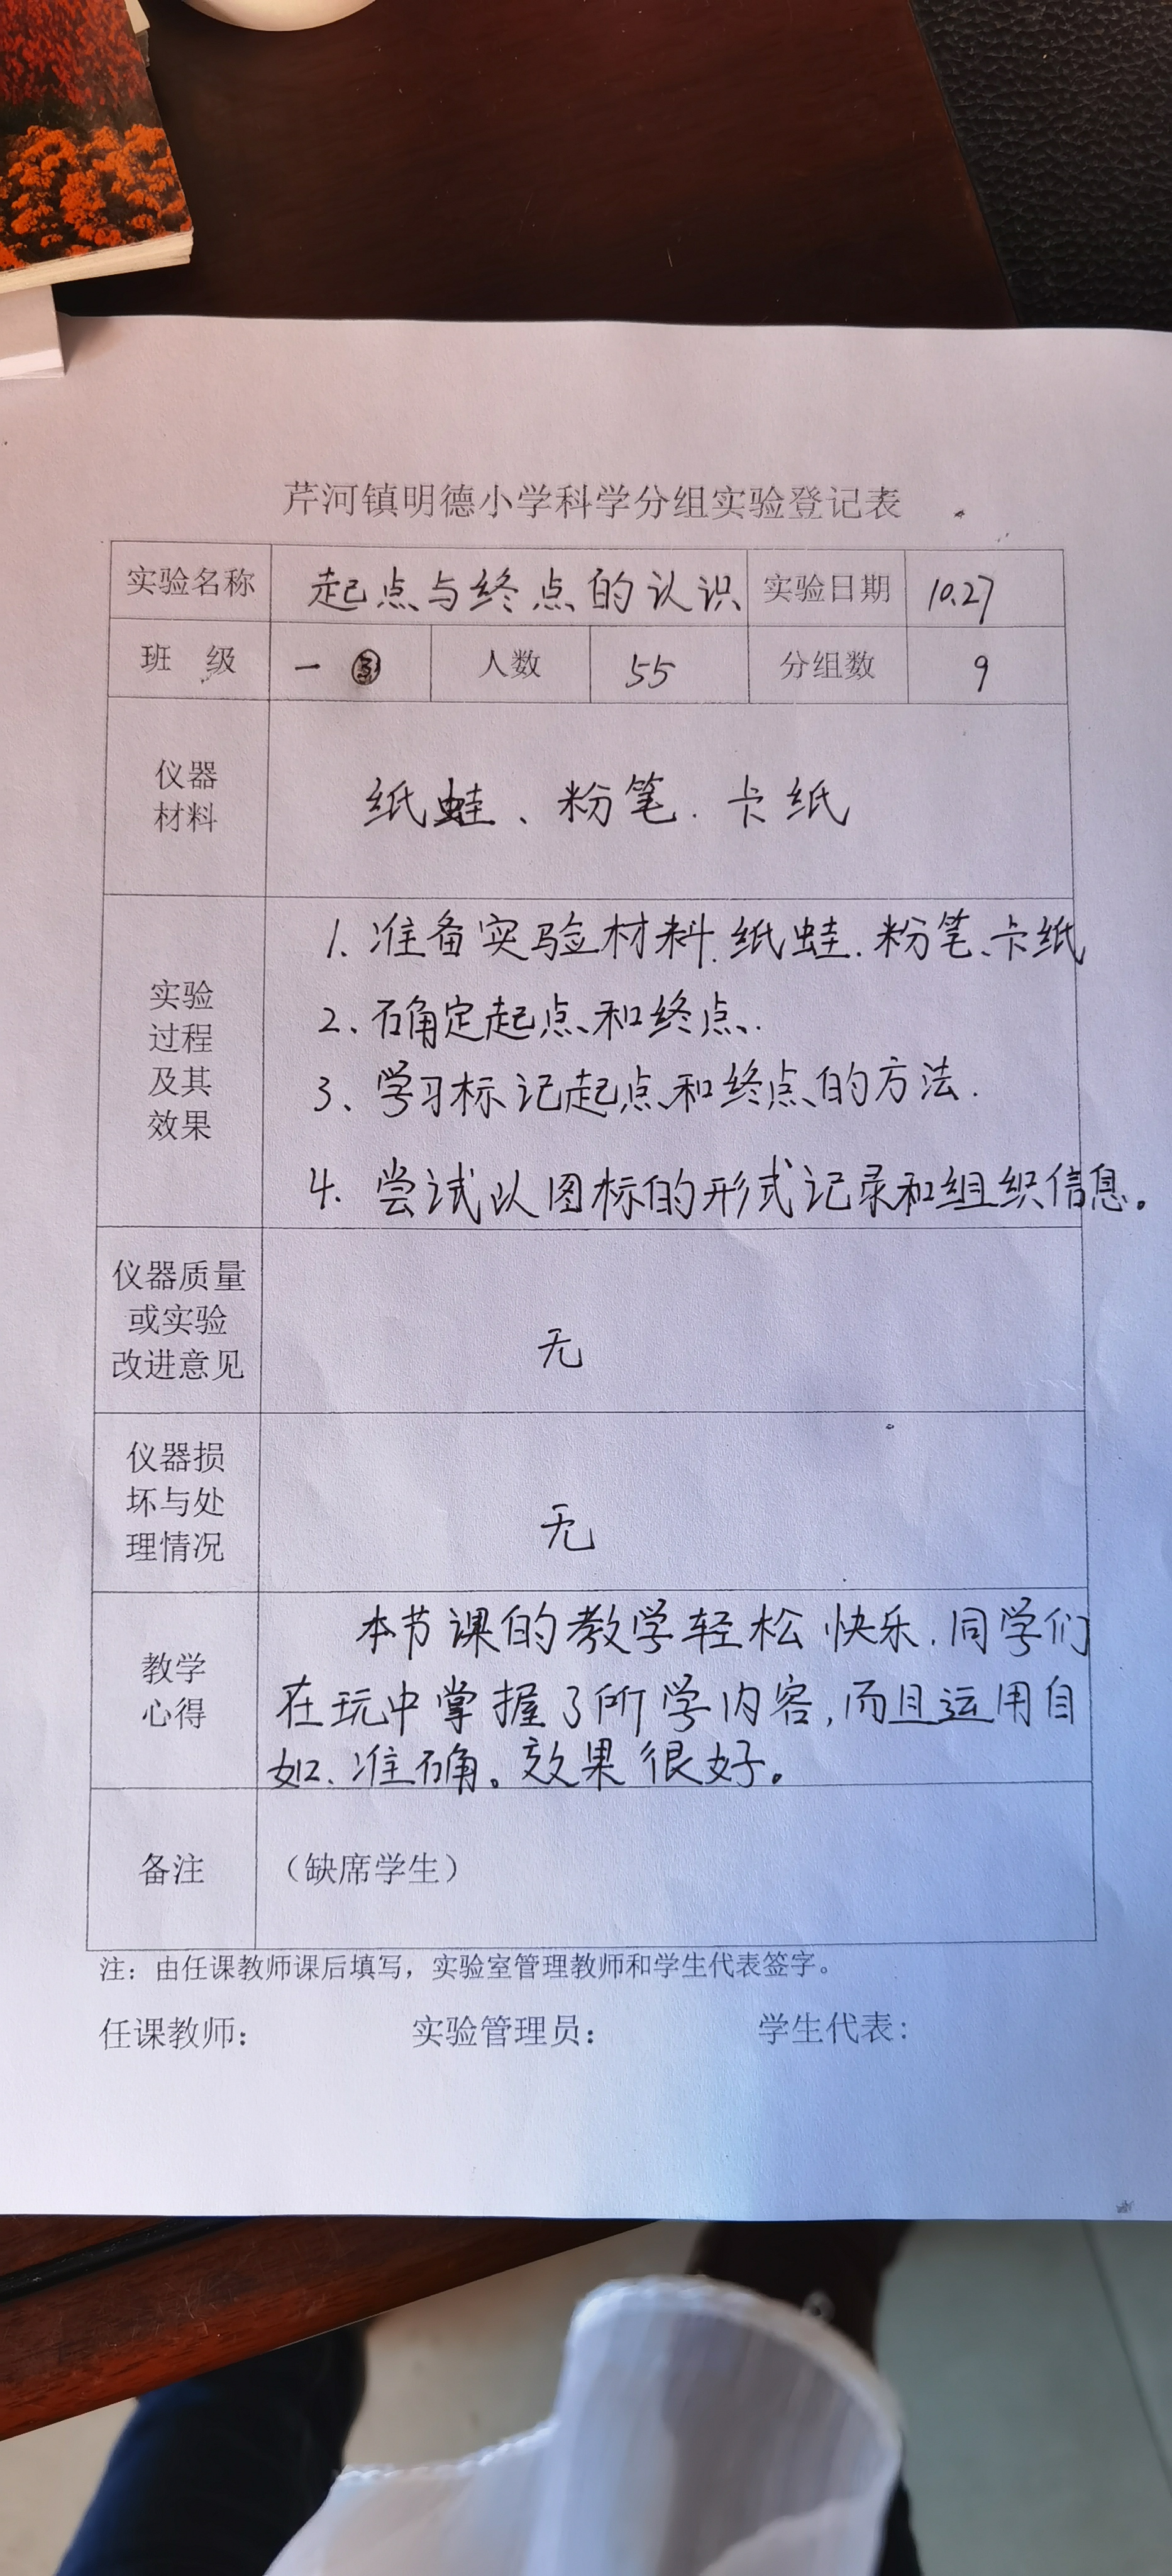 芹河镇明德小学科学分组实验登记表
实验名称 起点与终点的认识 实验日期 10.27
班 级 一 人数 55 分组数 9
仪器
材料
纸蛙、粉笔.卡纸
实验
过程
及其
效果
1.准备实验材料.纸蛙.粉笔、卡纸
2、确定起点和终点.
3、学习标记起点和终点的方法.
4.尝试以图标的形式记录和组织信息。
仪器质量
或实验
改进意见
无
仪器损
坏与处
理情况
无
教学
心得
本节课的教学轻松快乐.同学们
在玩中掌握了所学内容,而且运用自
如.准确。效果很好。
备注 （缺席学生）
注：由任课教师课后填写，实验室管理教师和学生代表签字。
任课教师： 实验管理员： 学生代表：